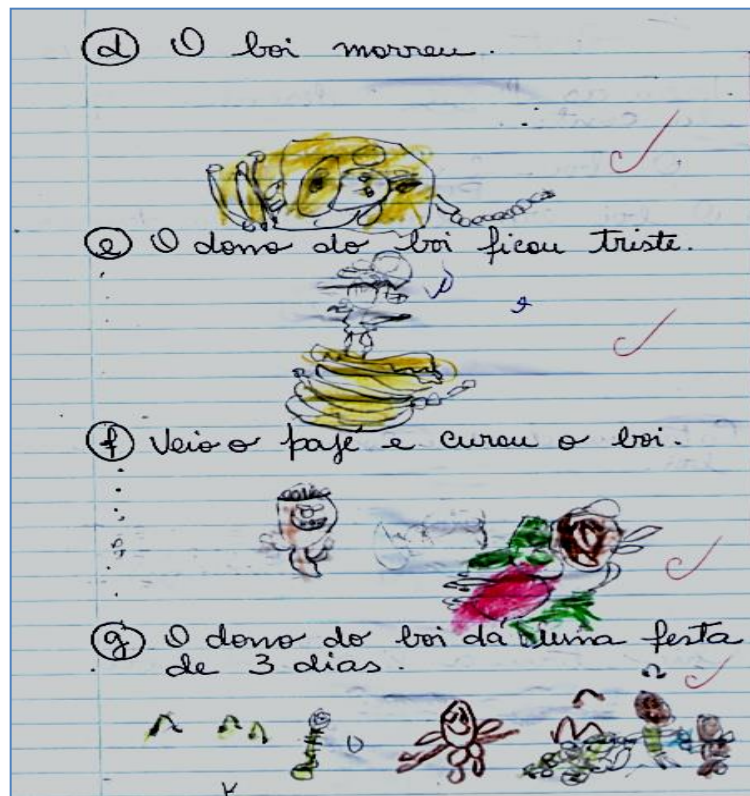 d O boi morreu.
e O dono do boi ficou triste.
f Veio o pajé e curou o boi.
g O dono do boi dá uma festa
de 3 dias.